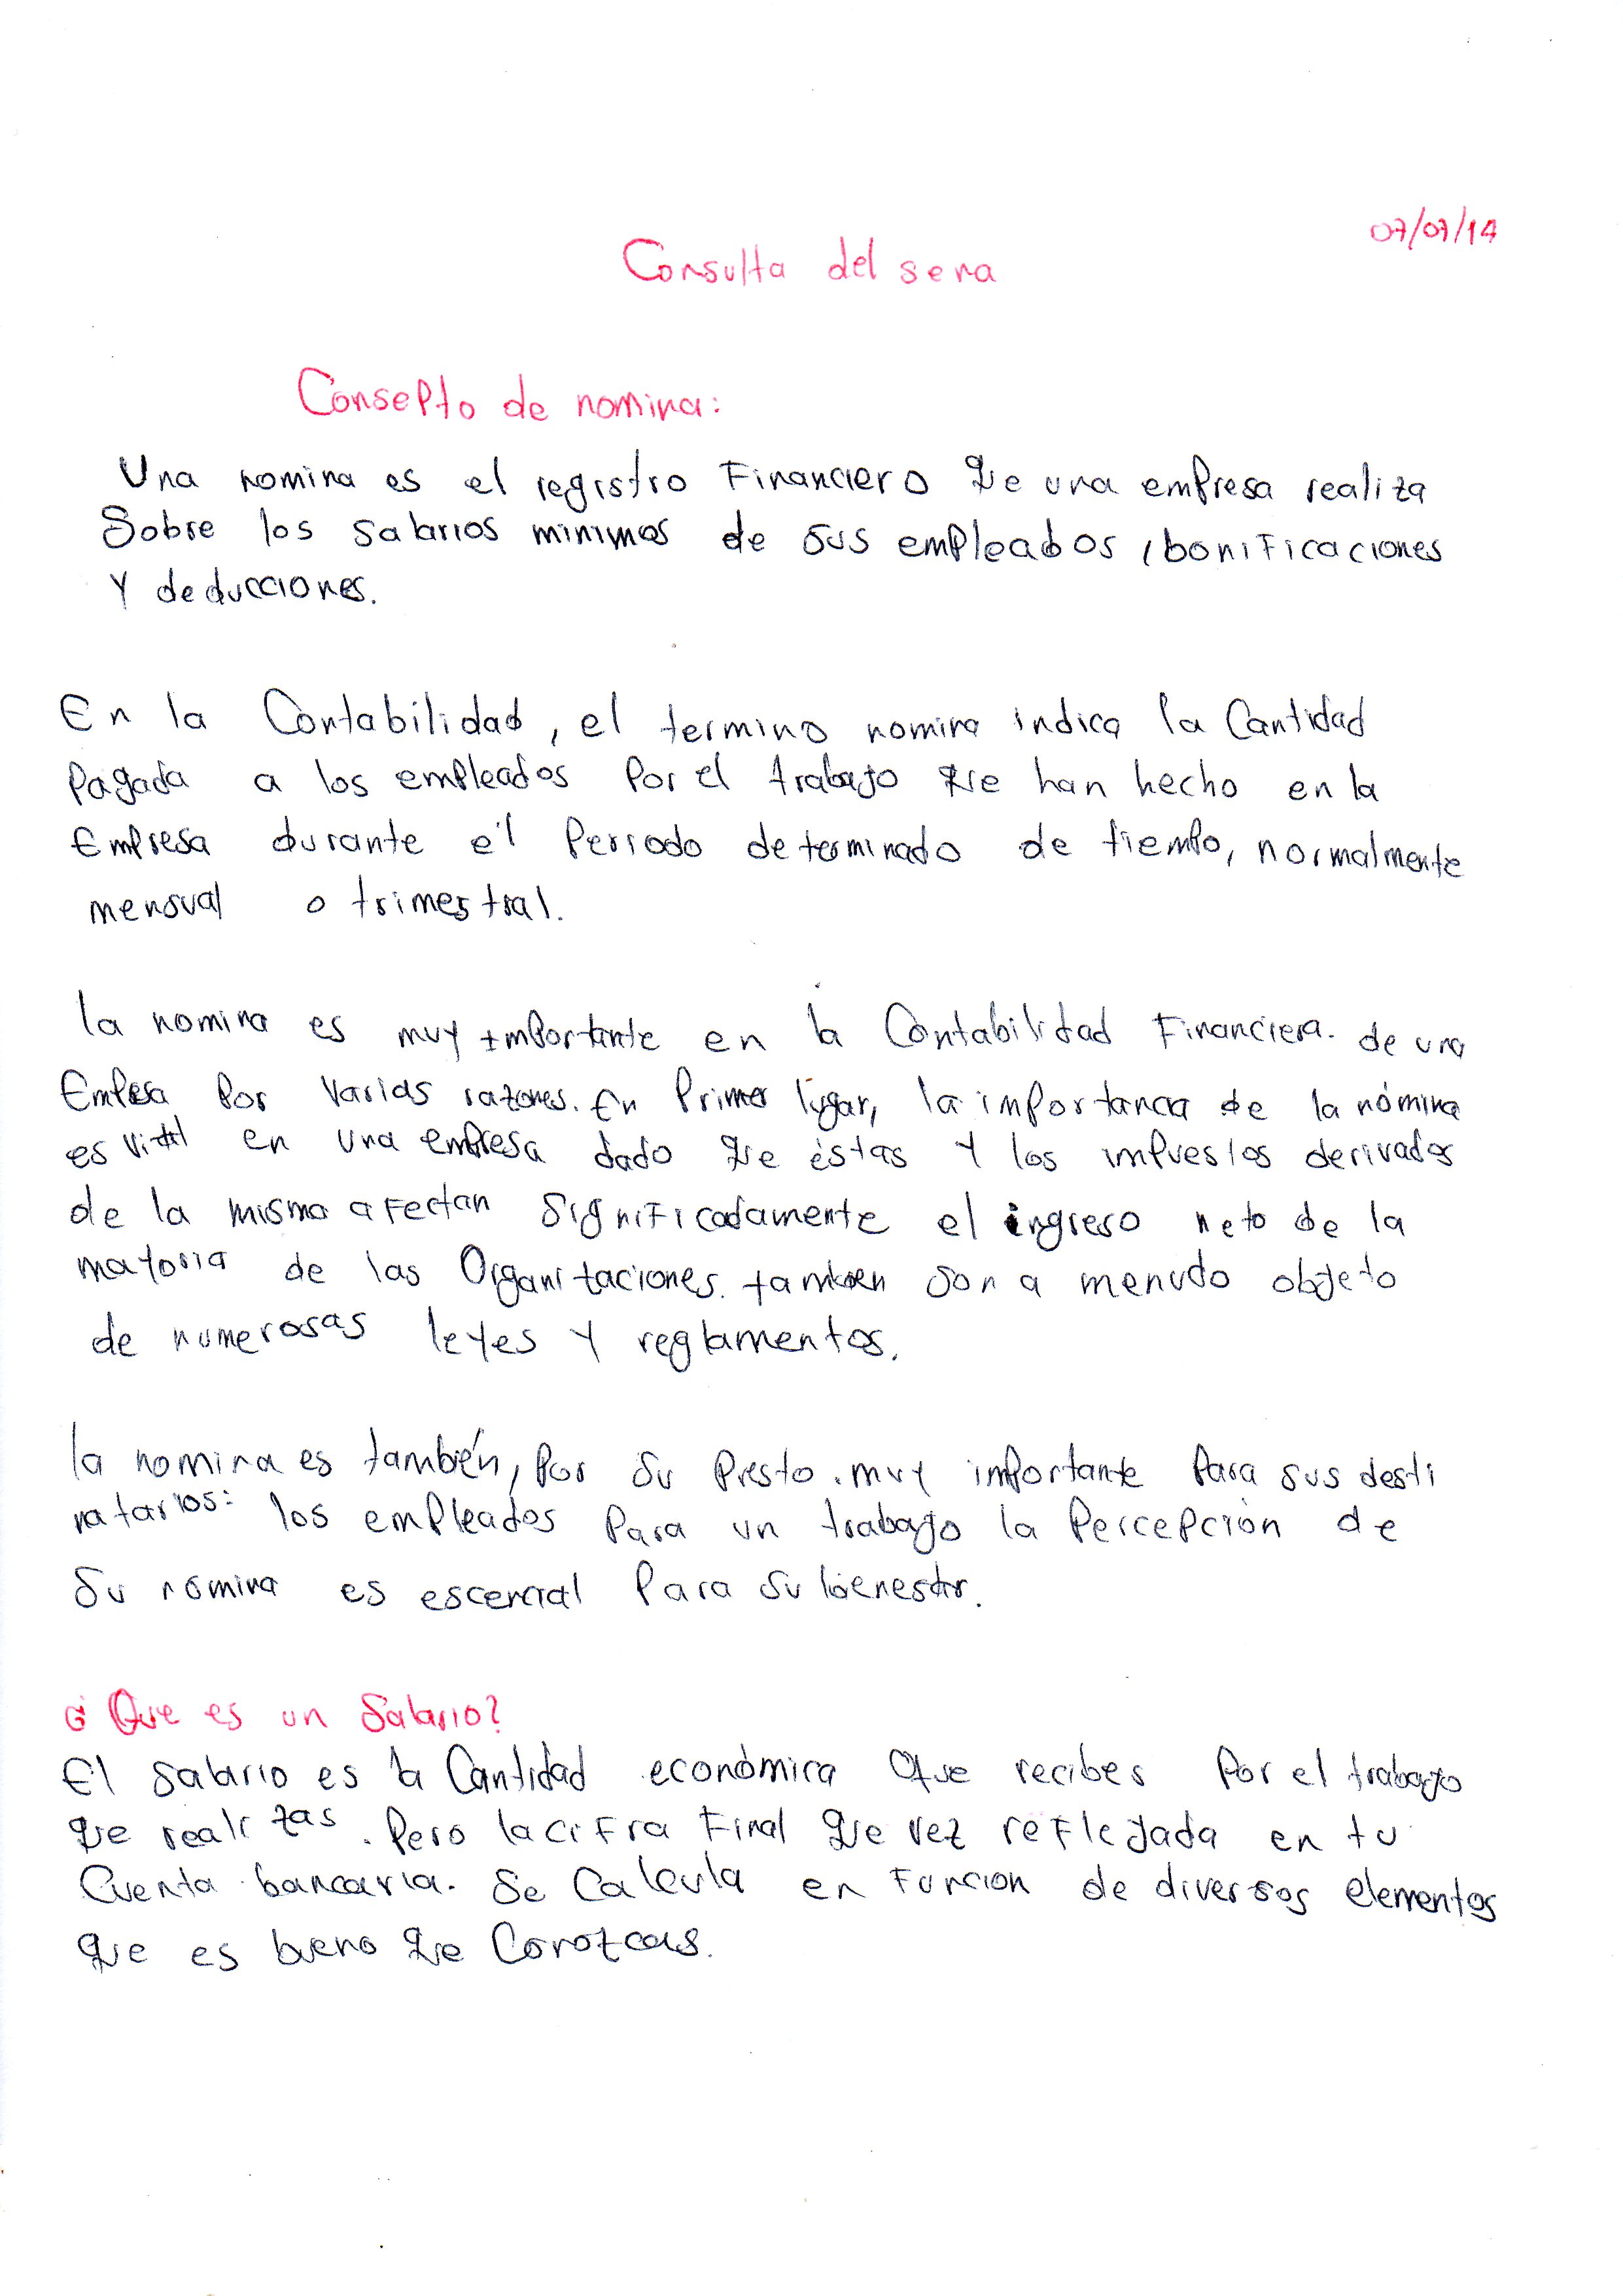 07/07/14
Consulta del sena
Consepto de nomina:
Una nomina es el registro Financiero que una empresa realiza
Sobre los salarios minimos de sus empleados, bonificaciones
Y deducciones.
En la Contabilidad, el termino nomina indica la Cantidad
Pagada a los empleados Por el trabajo que han hecho en la
Empresa durante el Periodo determinado de tiempo, normalmente
mensual o trimestral.
la nomina es muy importante en la Contabilidad Financiera. de una
Empresa Por varias razones. En Primer lugar, la importancia de la nómina
es vital en una empresa dado que éstas Y los impuestos derivados
de la misma afectan significadamente el ingreso neto de la
mayoria de las Organizaciones. tambien son a menudo objeto
de numerosas leyes Y reglamentos.
la nomina es también, Por su Presto. muy importante Para sus desti
natarios: los empleados Para un trabajo la Percepción de
Su nómina es escencial Para su bienestar.
¿Que es un Salario?
El Salario es la Cantidad económica Que recibes Por el trabajo
que realizas. Pero la cifra Final Que vez reflejada en tu
Cuenta bancaria. Se Calcula en Funcion de diversos elementos
que es bueno que Conozcas.